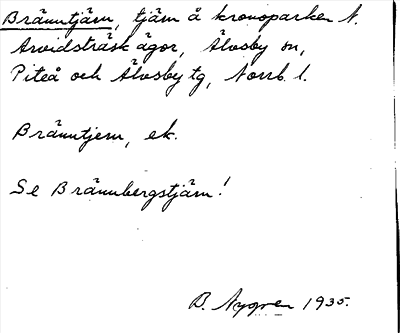 Bränntjärn, tjärn å kronoparken N.
Arvidsträsk ägor, Älvsby sn,
Piteå och Älvsby tg, Norrb. l.
Bränntjern, ek.
Se Brännbergstjärn!
B. Nygren 1935.